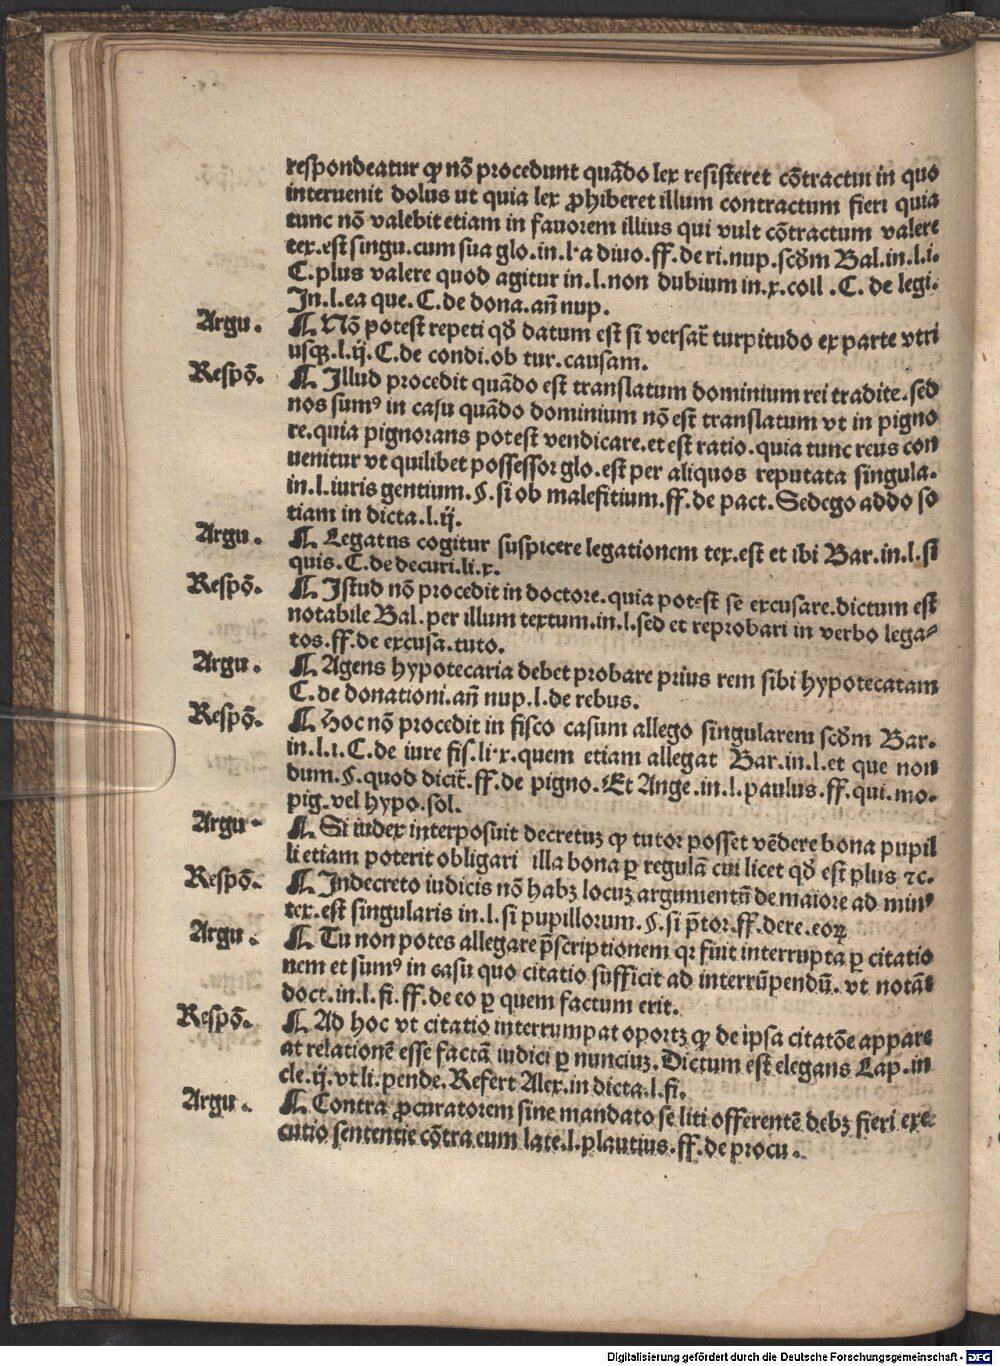 respondeatur ꝙ nõ procedunt quãdo lex resisteret cõtractui in quo
interuenit dolus ut quia lex ꝓhiberet illum contractum fieri quia
tunc nõ valebit etiam in fauorem illius qui vult cõtractum valere
tex.est singu.cum sua glo.in.l.a diuo.ff.de ri.nup.scðm Bal.in.l.i.
C.plus valere quod agitur in.l.non dubium in.x.coll.C.de legi.
In.l.ea que.C.de dona.añ nup.
Argu. ¶ Nõ potest repeti qð datum est si versat̃ turpitudo ex parte vtri
usqꝫ.l.ij.C.de condi.ob tur.causam.
Respõ. ¶ Illud procedit quãdo est translatum dominium rei tradite.sed
nos sumꝰ in casu quãdo dominium nõ est translatum vt in pigno
re.quia pignorans potest vendicare.et est ratio.quia tunc reus con
uenitur vt quilibet possessor glo.est per aliquos reputata singula.
in.l.iuris gentium.§.si ob malefitium.ff.de pact.Sed ego addo so
tiam in dicta.l.ij.
Argu. ¶ Legatus cogitur suspicere legationem tex.est et ibi Bar.in.l.si
quis.C.de decuri.li.x.
Respõ. ¶ Istud nõ procedit in doctore.quia potest se excusare.dictum est
notabile Bal.per illum textum.in.l.sed et reprobari in verbo lega⸗
tos.ff.de excusa.tuto.
Argu. ¶ Agens hypotecaria debet probare prius rem sibi hypotecatam
C.de donationi.añ nup.l.de rebus.
Respõ. ¶ Hoc nõ procedit in fisco casum allego singularem scðm Bar.
in.l.1.C.de iure fis.li.x.quem etiam allegat Bar.in.l.et que non
dum.§.quod dicit̃.ff.de pigno.Et Ange.in.l.paulus.ff.qui.mo.
pig.vel hypo.sol.
Argu. ¶ Si iudex interposuit decretuꝫ ꝙ tutor posset vẽdere bona pupil
li etiam poterit obligari illa bona ꝑ regulã cui licet qð est plus ⁊c.
Respõ. ¶ In decreto iudicis nõ habꝫ locuꝫ argumentũ de maiore ad minꝰ
tex.est singularis in.l.si pupillorum.§.si p̃tor.ff.de re.eoꝝ
Argu. ¶ Tu non potes allegare p̃scriptionem qꝛ fuit interrupta ꝑ citatio
nem et sumꝰ in casu quo citatio sufficit ad interrũpendũ.vt notãt
doct.in.l.fi.ff.de eo ꝑ quem factum erit.
Respõ. ¶ Ad hoc vt citatio interrumpat oportꝫ ꝙ de ipsa citatõe appare
at relationẽ esse factã iudici ꝑ nunciuꝫ.Dictum est elegans Lap.in
cle.ij.vt li.pende.Refert Alex.in dicta.l.fi.
Argu. ¶ Contra ꝓcuratorem sine mandato se liti offerentẽ debꝫ fieri exe
cutio sententie cõtra eum late.l.plautius.ff.de procu.
Digitalisierung gefördert durch die Deutsche Forschungsgemeinschaft - DFG